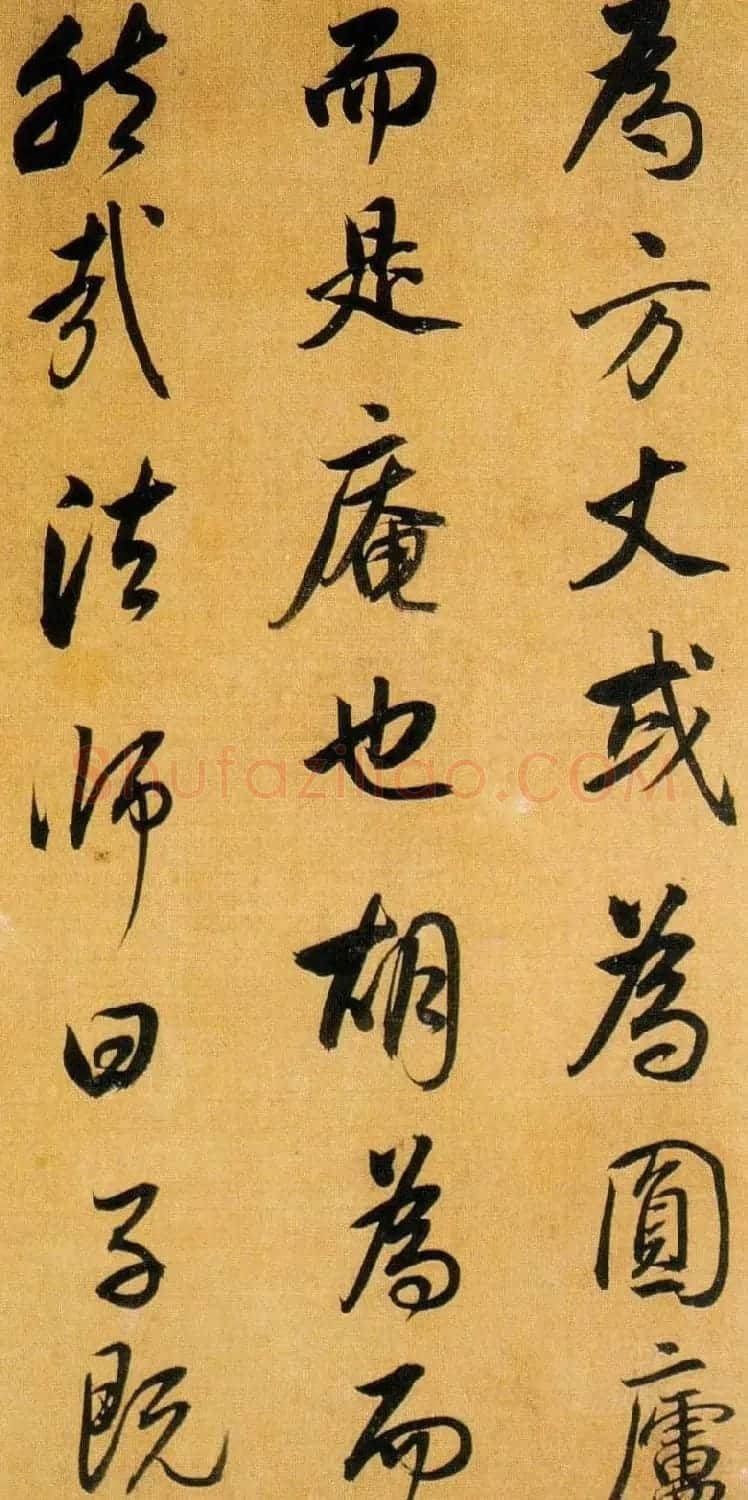 為方丈或為圓廬
而是庵也胡為而
然哉法師曰子既
Shufaziliao.COM